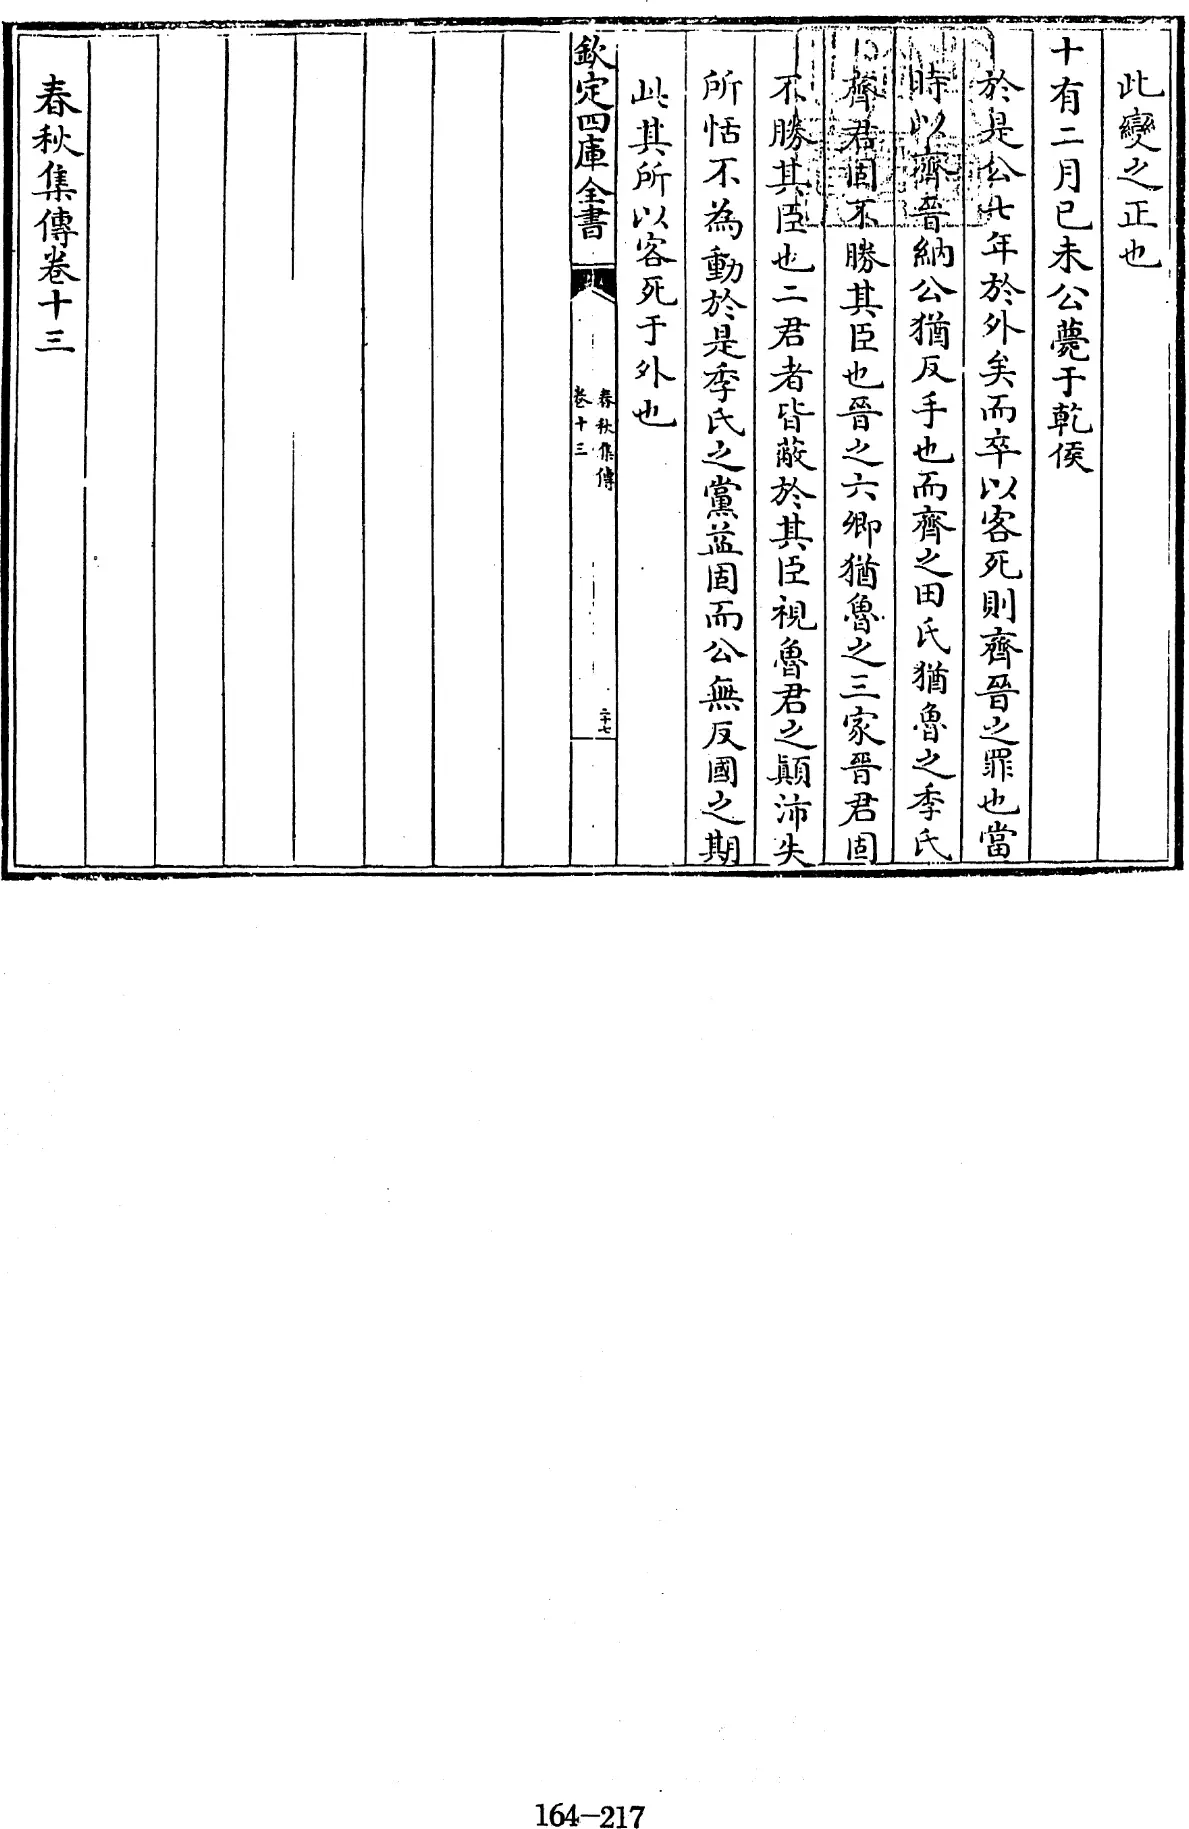 此變之正也
十有二月已未公薨于乾侯
於是公七年於外矣而卒以客死則齊晉之罪也當
時以齊晉納公猶反手也而齊之田氏猶魯之季氏
齊君固不勝其臣也晉之六卿猶魯之三家晉君固
不勝其臣也二君者皆蔽於其臣視魯君之顛沛失
所恬不為動於是季氏之黨益固而公無反國之期
此其所以客死于外也
欽定四庫全書
春秋集傳
卷十三
二十七
春秋集傳卷十三
164-217